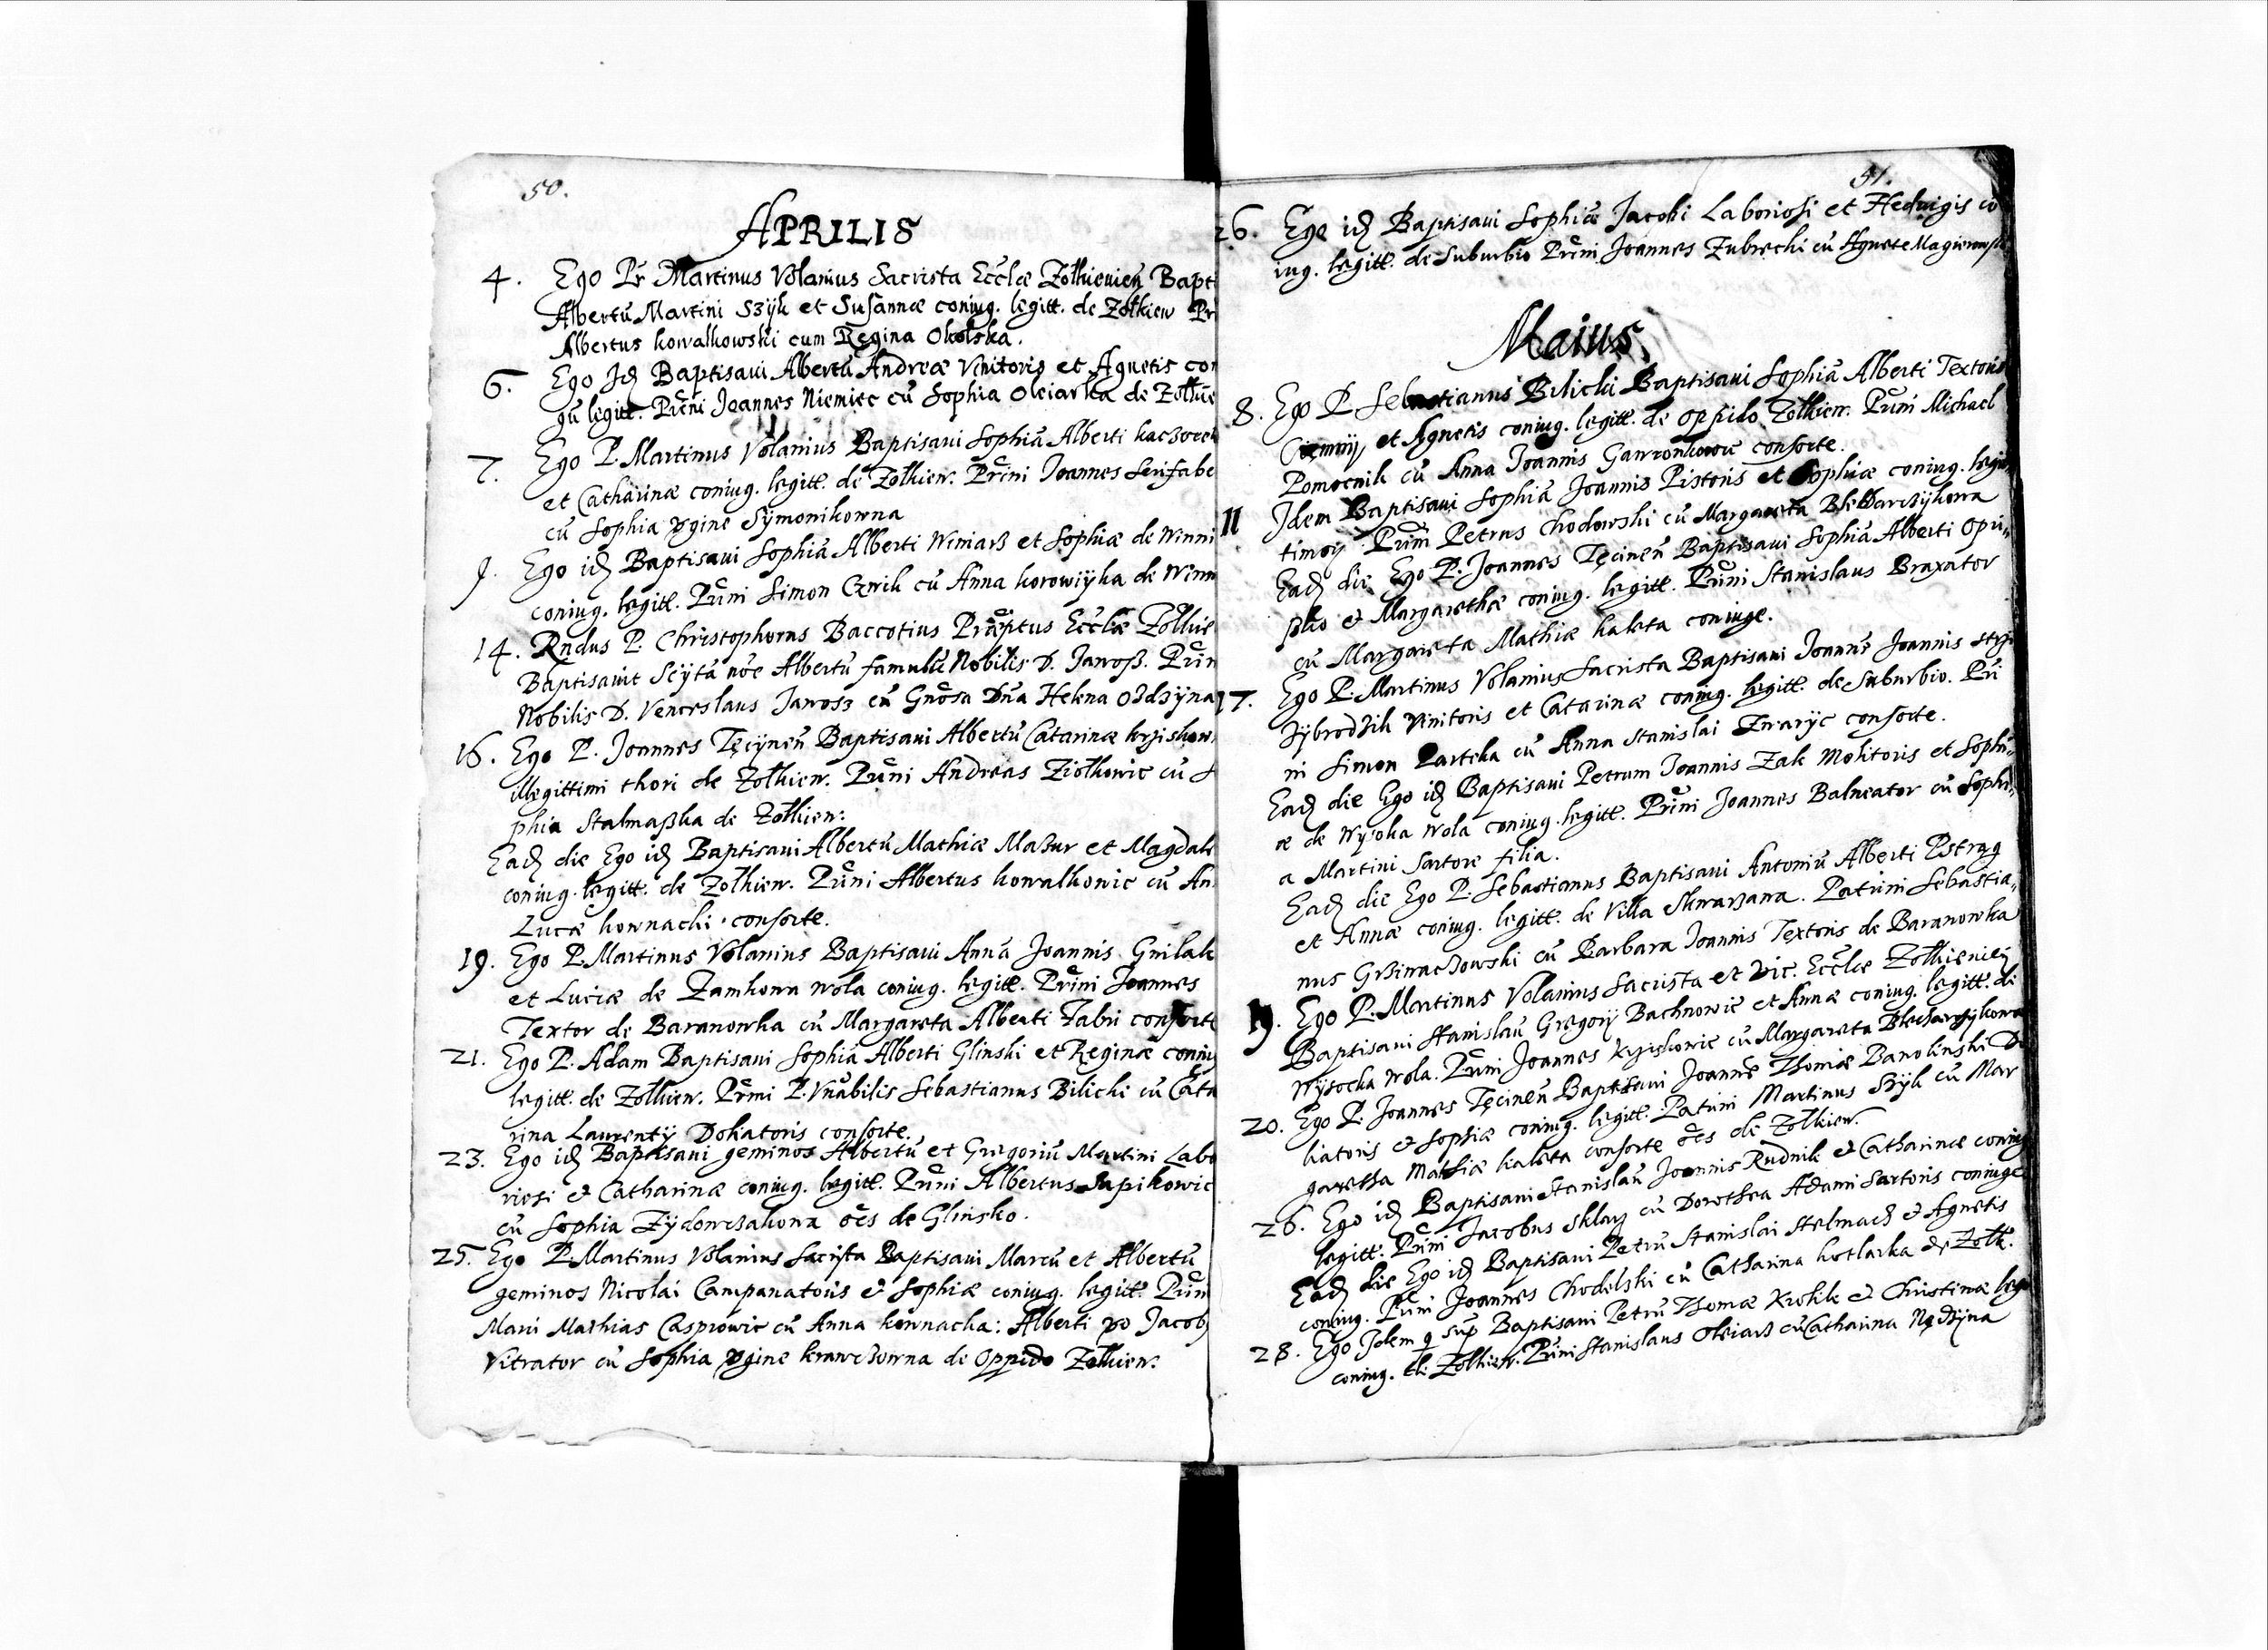 50.
APRILIS
4. Ego Pr Martinus Volanius Sacrista Ecclæ Zołkieuień Bapt
Albertũ Martini Szÿk et Susannæ coniug. legitt. de Zołkiew Pr
Albertus kowalkowski cum Regina Okolska.
6. Ego Id Baptisaui Albertũ Andreæ Vinitoris et Agnetis con
gũ legitt. Prini Joannes Niemiec cũ Sophia Oleiarka de Zolkie
7. Ego P. Martinus Volanius Baptisaui Sophiã Alberti
et Catharinæ coniug. legitt. de Zolkiew. Prini Joannes
cũ Sophia vgine Sÿmonikowna
9. Ego id Baptisaui Sophiã Alberti Winiarß et Sophiæ de Winni
coniug. legitt. Prini Simon cũ Anna korowiÿka de Winn
14. Rndus P. Christophorus Baccotius Præptus Ecclæ Zolkie
Baptisauit Scÿtã nõe Albertũ famulũ Nobilis D. Janoß. Prin
Nobilis D. Venceslaus Janosz cũ Gnõsa Dña Helena
16. Ego P. Joannes Tęcÿneñ Baptisaui Albertũ Catarinæ
illegittimi thori de Zolkiew. Prini Andreas Ziolkowic cũ S
phia Stalmaßka de Zolkiew.
Ead die Ego id Baptisaui Albertũ Mathiæ Mazur et Magdale
coniug. legitt. de Zolkiew. Prini Albertus kowalkowic cũ An
Lucæ kownacki consorte.
19. Ego P. Martinus Volanius Baptisaui Annã Joannis Gnilak
et Luciæ de Zamkowa wola coniug. legitt. Prini Joannes
Textor de Baranowka cũ Margareta Alberti Fabri consorte
21. Ego P. Adam Baptisaui Sophiã Alberti Glinski et Reginæ coniu
legitt. de Zolkiew. Prini P. Vnabilis Sebastianus Bilicki cũ Cata
rina Laurentÿ Doliatoris consorte.
23. Ego id Baptisaui geminos Albertũ et Gregoriũ Martini Labo
riosi et Catharinæ coniug. legitt. Prini Albertus Sapikowic
cũ Sophia Zÿdowczakowa oẽs de Glinsko.
25. Ego P. Martinus Volanius Sacrista Baptisaui Marcũ et Albertũ
geminos Nicolai Campanatoris et Sophiæ coniug. legitt. Prini
Marci Mathias Casprowic cũ Anna kownacka: Alberti vo Jacob
Vitrator cũ Sophia vgine krawczowna de Oppido Zolkiew.
51.
26. Ego id Baptisaui Sophiã Jacobi Laboriosi et Heduigis co
iug. legitt. de Suburbio Prini Joannes Zubrecki cũ Agnete
Maius
8. Ego P. Sebastianus Bilicki Baptisaui Sophiã Alberti Textoris
et Agnetis coniug. legitt. de Oppido Zolkiew. Prini Michael
Pomocnik cũ Anna Joannis consorte.
11 Idem Baptisaui Sophiã Joannis Pistoris et Sophiæ coniug. legi
timoÿ Prini Petrus Chodowski cũ Margareta
Ead die Ego P. Joannes Tęcineñ Baptisaui Sophiã Alberti Opri„
ßko et Margarethæ coniug. legitt. Prini Stanislaus Braxator
cũ Margareta Mathiæ kaleta coniuge.
17. Ego P. Martinus Volanius Sacrista Baptisaui Joannẽ Joannis
Vinitoris et Catarinæ coniug. legitt. de Suburbio. Pri
ni Simon cũ Anna Stanislai consorte.
Ead die Ego id Baptisaui Petrum Joannis Zak Molitoris et Sophi„
æ de Wysoka Wola coniug. legitt. Prini Joannes Balneator cũ Sophi„
a Martini Sartore filia.
Ead die Ego P. Sebastianus Baptisaui Antoniũ Alberti Pstrąg
et Annæ coniug. legitt. de Villa Skwarzawa. Patrini Sebastia„
nus cũ Barbara Joannis Textoris de Baranowka
19. Ego P. Martinus Volanius Sacrista et Vic. Ecclæ Zolkieuień
Baptisaui Stanislaũ Gregorÿ Bachnowic et Annæ coniug. legitt. de
Wysocka Wola. Prini Joannes cũ Margareta
20. Ego P. Joannes Tęcineñ Baptisaui Joannẽ Thomæ Banolinski Do
liatoris et Sophiæ coniug. legitt. Patrini Martinus Szÿk cũ Mar
garetha Mathiæ kaleta consorte oẽs de Zolkiew.
26. Ego id Baptisaui Stanislaũ Joannis Rudnik et Catharinæ coniug
legitt. Prini Jacobus Sklarz cũ Dorothea Adami Sartoris coniuge
Ead die Ego id Baptisaui Petrũ Stanislai Stelmach et Agnetis
coniug. Prini Joannes Chodelski cũ Catharina kotlarka de Zolk.
28. Ego Idem q sup Baptisaui Petrũ Thomæ Krokk et Christinæ legi
coniug. de Zolkiew. Prini Stanislaus Oleiarz cũ Catharina Nędzÿna